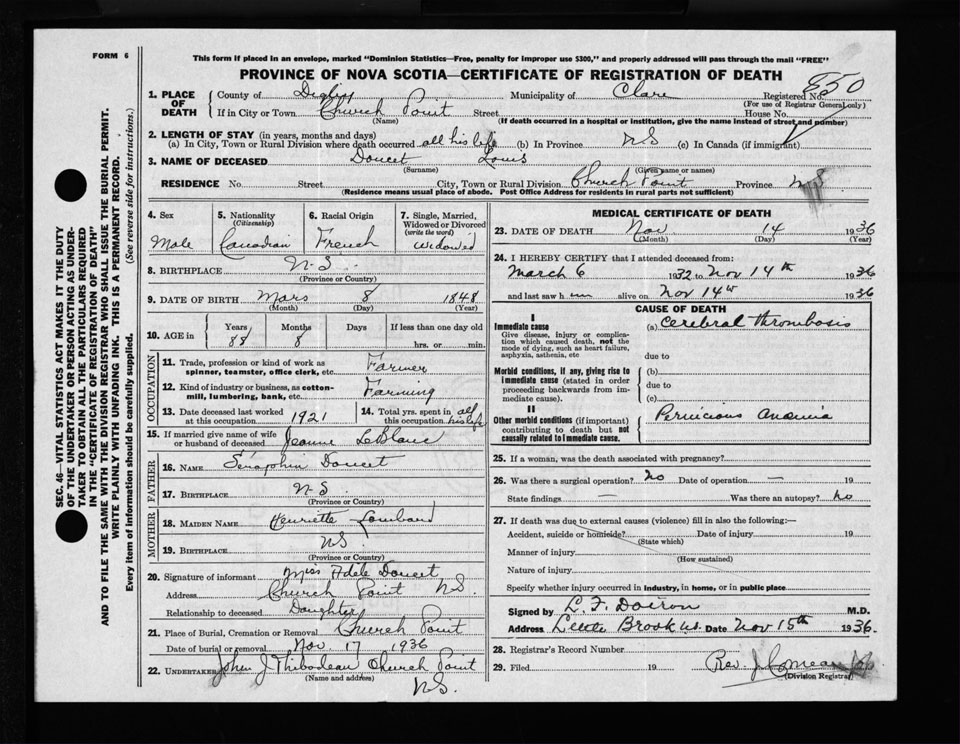 FORM 6
This form if placed in an envelope, marked "Dominion Statistics—Free, penalty for improper use $300," and properly addressed will pass through the mail "FREE"
PROVINCE OF NOVA SCOTIA—CERTIFICATE OF REGISTRATION OF DEATH
850
1. PLACE OF DEATH County of Digby Municipality of Clare Registered No.
(For use of Registrar General only)
If in City or Town Church Point Street House No.
(Name) (If death occurred in a hospital or institution, give the name instead of street and number)
2. LENGTH OF STAY (in years, months and days)
(a) In City, Town or Rural Division where death occurred all his life (b) In Province N.S (c) In Canada (if immigrant)
3. NAME OF DECEASED Doucet Louis
(Surname) (Given name or names)
RESIDENCE No. Street City, Town or Rural Division Church Point Province N.S.
(Residence means usual place of abode. Post Office Address for residents in rural parts not sufficient)
SEC. 46—VITAL STATISTICS ACT MAKES IT THE DUTY
OF THE UNDERTAKER OR PERSON ACTING AS UNDER-
TAKER TO OBTAIN ALL THE PARTICULARS REQUIRED
IN THE "CERTIFICATE OF REGISTRATION OF DEATH"
AND TO FILE THE SAME WITH THE DIVISION REGISTRAR WHO SHALL ISSUE THE BURIAL PERMIT.
WRITE PLAINLY WITH UNFADING INK. THIS IS A PERMANENT RECORD.
Every item of information should be carefully supplied. (See reverse side for instructions.)
4. Sex
Male
5. Nationality
(Citizenship)
Canadian
6. Racial Origin
French
7. Single, Married,
Widowed or Divorced
(write the word)
Widowed
8. BIRTHPLACE N.S.
(Province or Country)
9. DATE OF BIRTH Mars 8 1848
(Month) (Day) (Year)
10. AGE in Years Months Days If less than one day old
88 8 hrs. or min.
OCCUPATION
11. Trade, profession or kind of work as
spinner, teamster, office clerk, etc. Farmer
12. Kind of industry or business, as cotton-
mill, lumbering, bank, etc. Farming
13. Date deceased last worked
at this occupation 1921
14. Total yrs. spent in
this occupation all his life
15. If married give name of wife
or husband of deceased Jeanne LeBlanc
FATHER
16. NAME Séraphin Doucet
17. BIRTHPLACE N.S
(Province or Country)
MOTHER
18. MAIDEN NAME Henriette Lombard
19. BIRTHPLACE N.S.
(Province or Country)
20. Signature of informant Miss Adele Doucet
Address Church Point N.S.
Relationship to deceased Daughter
21. Place of Burial, Cremation or Removal Church Point
Date of burial or removal Nov. 17 1936
22. UNDERTAKER John J Thibodeau Church Point
(Name and address)
N.S.
MEDICAL CERTIFICATE OF DEATH
23. DATE OF DEATH Nov 14 1936
(Month) (Day) (Year)
24. I HEREBY CERTIFY that I attended deceased from:
March 6 1932 to Nov 14th 1936
and last saw him alive on Nov 14th 1936
CAUSE OF DEATH
I
Immediate cause
Give disease, injury or complica-
tion which caused death, not the
mode of dying, such as heart failure,
asphyxia, asthenia, etc
(a) Cerebral thrombosis
due to
Morbid conditions, if any, giving rise to
immediate cause (stated in order
proceeding backwards from im-
mediate cause).
(b)
due to
(c)
II
Other morbid conditions (if important)
contributing to death but not
causally related to immediate cause.
Pernicious Anaemia
25. If a woman, was the death associated with pregnancy?
26. Was there a surgical operation? No Date of operation — 19
State findings — Was there an autopsy? No
27. If death was due to external causes (violence) fill in also the following:—
Accident, suicide or homicide? Date of injury 19
(State which)
Manner of injury
(How sustained)
Nature of injury
Specify whether injury occurred in industry, in home, or in public place
Signed by L. F. Doiron M.D.
Address Little Brook N.S. Date Nov 15th 1936.
28. Registrar's Record Number
29. Filed 19 Rev. J. Comeau
(Division Registrar)